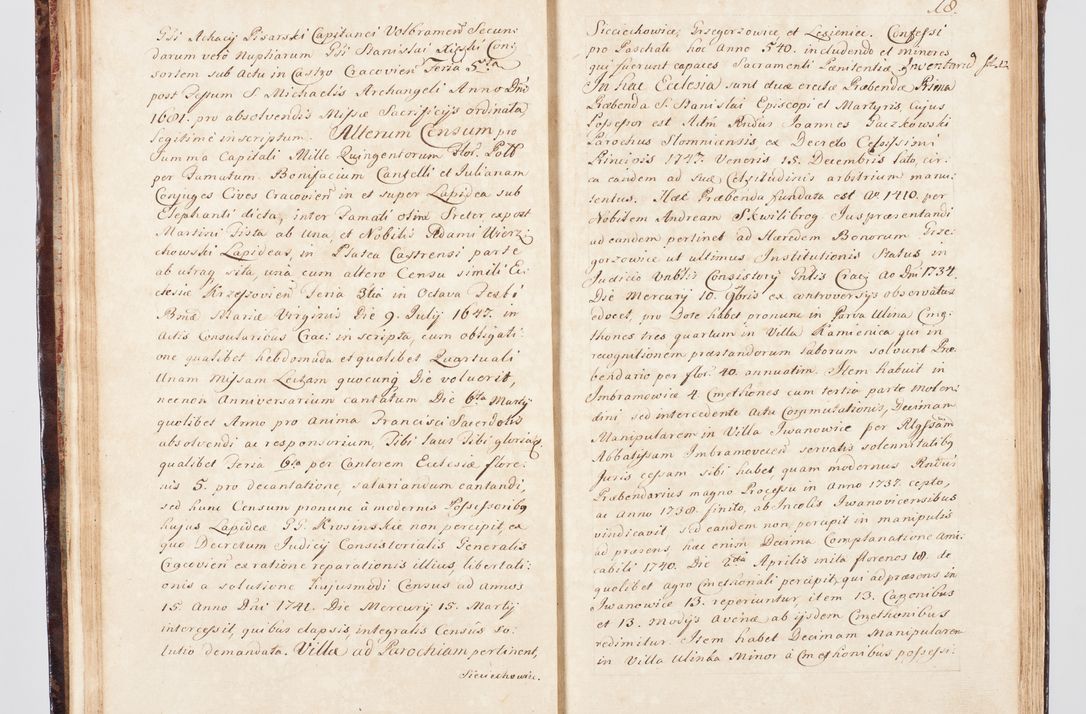 Gsi Achacij Pisarski Capitanei Volbramen Secun:
darum vero Nuptiarum Gsi Stanislai Consortem
sortem sub Actu in Castro Cracovien Feria 5ta
post Festum S. Michaelis Archangeli Anno Dni
1681. pro absolvendis Missæ Sacrificijs ordinata
legitime inscriptum. Alterum Censum pro
Summa Capitali Mille Quingentorum Flor. Poll
per Famatum Bonifacium Cantelli et Julianam
Conjuges Cives Cracovien in et super Lapidea sub
Elephanti dicta, inter Famati olim Sreter, ex post
Martini Fista ab una, et Nobilis Adami Wierz:
chowski Lapideas, in Platea Castrensi parte
ab utraq sita, una cum altero Censu simili Ec:
clesiæ Krzessovien Feria 3tia in Octava Festi
Bmæ Mariæ Virginis Die 9. Julij 1647. in
Actis Consularibus Crac: inscripta, cum obligati:
one qualibet hebdomada et quolibet Quartuali
Unam Missam Lectam quocunq Die voluerit,
necnon Anniversarium cantatum Die 6ta Martij
quolibet Anno pro anima Francisci Sacerdotis
absolvendi ac responsorium, Tibi laus Tibi gloria,
qualibet Feria 6ta per Cantorem Ecclesiæ flore:
nis 5. pro decantatione, salariandum cantandi,
sed hunc Censum pronunc à modernis Possessoribq
hujus Lapideæ GG. Krosinskie non percipit, ex
quo Decretum Judicij Consistorialis Generalis
Cracovien ex ratione reparationis illius, libertati:
onis a solutione hujusmodi Census ad annos
15. Anno Dni 1741. Die Mercurij 15. Martij
intercessit, quibus elapsis integralis Census so:
lutio demandata. Villæ ad Parochiam pertinent,
Sieciechowice.
18.
Sieciechowice, Grzegorzowice, et Lesieniec. Confessi
pro Paschate hoc Anno 540. includendo et minores
qui fuerunt capaces Sacramenti Pænitentiæ
In hac Ecclesia sunt duæ erectæ Præbendæ Prima
Præbenda S. Stanislai Episcopi et Martyris, Cujus
Possessor est Adm Rndus Joannes Gaczkowski
Parochus Slomniensis ex Decreto Celsissimi
Principis 1747. Veneris 15. Decembris lato, cir:
ca eandem ad suæ Celsitudinis arbitrium manu:
tentus. Hæc Præbenda fundata est Ao 1410. per
Nobilem Andream Skwilibrog Jus præsentandi
ad eandem pertinet ad Hæredem Bonorum Grze:
gorzowice ut ultimus Institutionis Status in
Judicio Vnblis Consistorij Gnlis Crac: Ao Dni 1734.
Die Mercurij 10. 9bris ex controversijs observatus
edocet, pro Dote habet pronunc in Parva Ulina Cme:
thones tres quartum in Villa Kamienica qui in
recognitionem præstandorum laborum solvunt Præ:
bendario per flor: 40. annuatim. Item habuit in
Imbramowice 4. Cmethones cum tertia parte molen:
dini sed intercedente Actu Commutationis, Decimam
Manipularem in Villa Iwanowice per
Abbatissam Imbramovicen servatis solennitatibq
Juris cessam sibi habet quam modernus Rndus
Præbendarius magno Processu in Anno 1737. cepto,
ac Anno 1738. finito, ab Incolis Iwanovicensibus
vindicavit, sed eandem non percipit in manipulis
ad præsens, hac enim Decima Complanatione Ami:
cabili 1740. Die 2da Aprilis inita florenos 18. de
quolibet agro Cmethonali percipit, qui ad præsens in
Iwanowice 13. reperiuntur item 13. Caponibus
et 13. Modijs avenæ ab ijsdem Cmethonibus
redimitur. Item habet Decimam Manipularem
in Villa Ulinka Minor à Cmethonibus possessi: